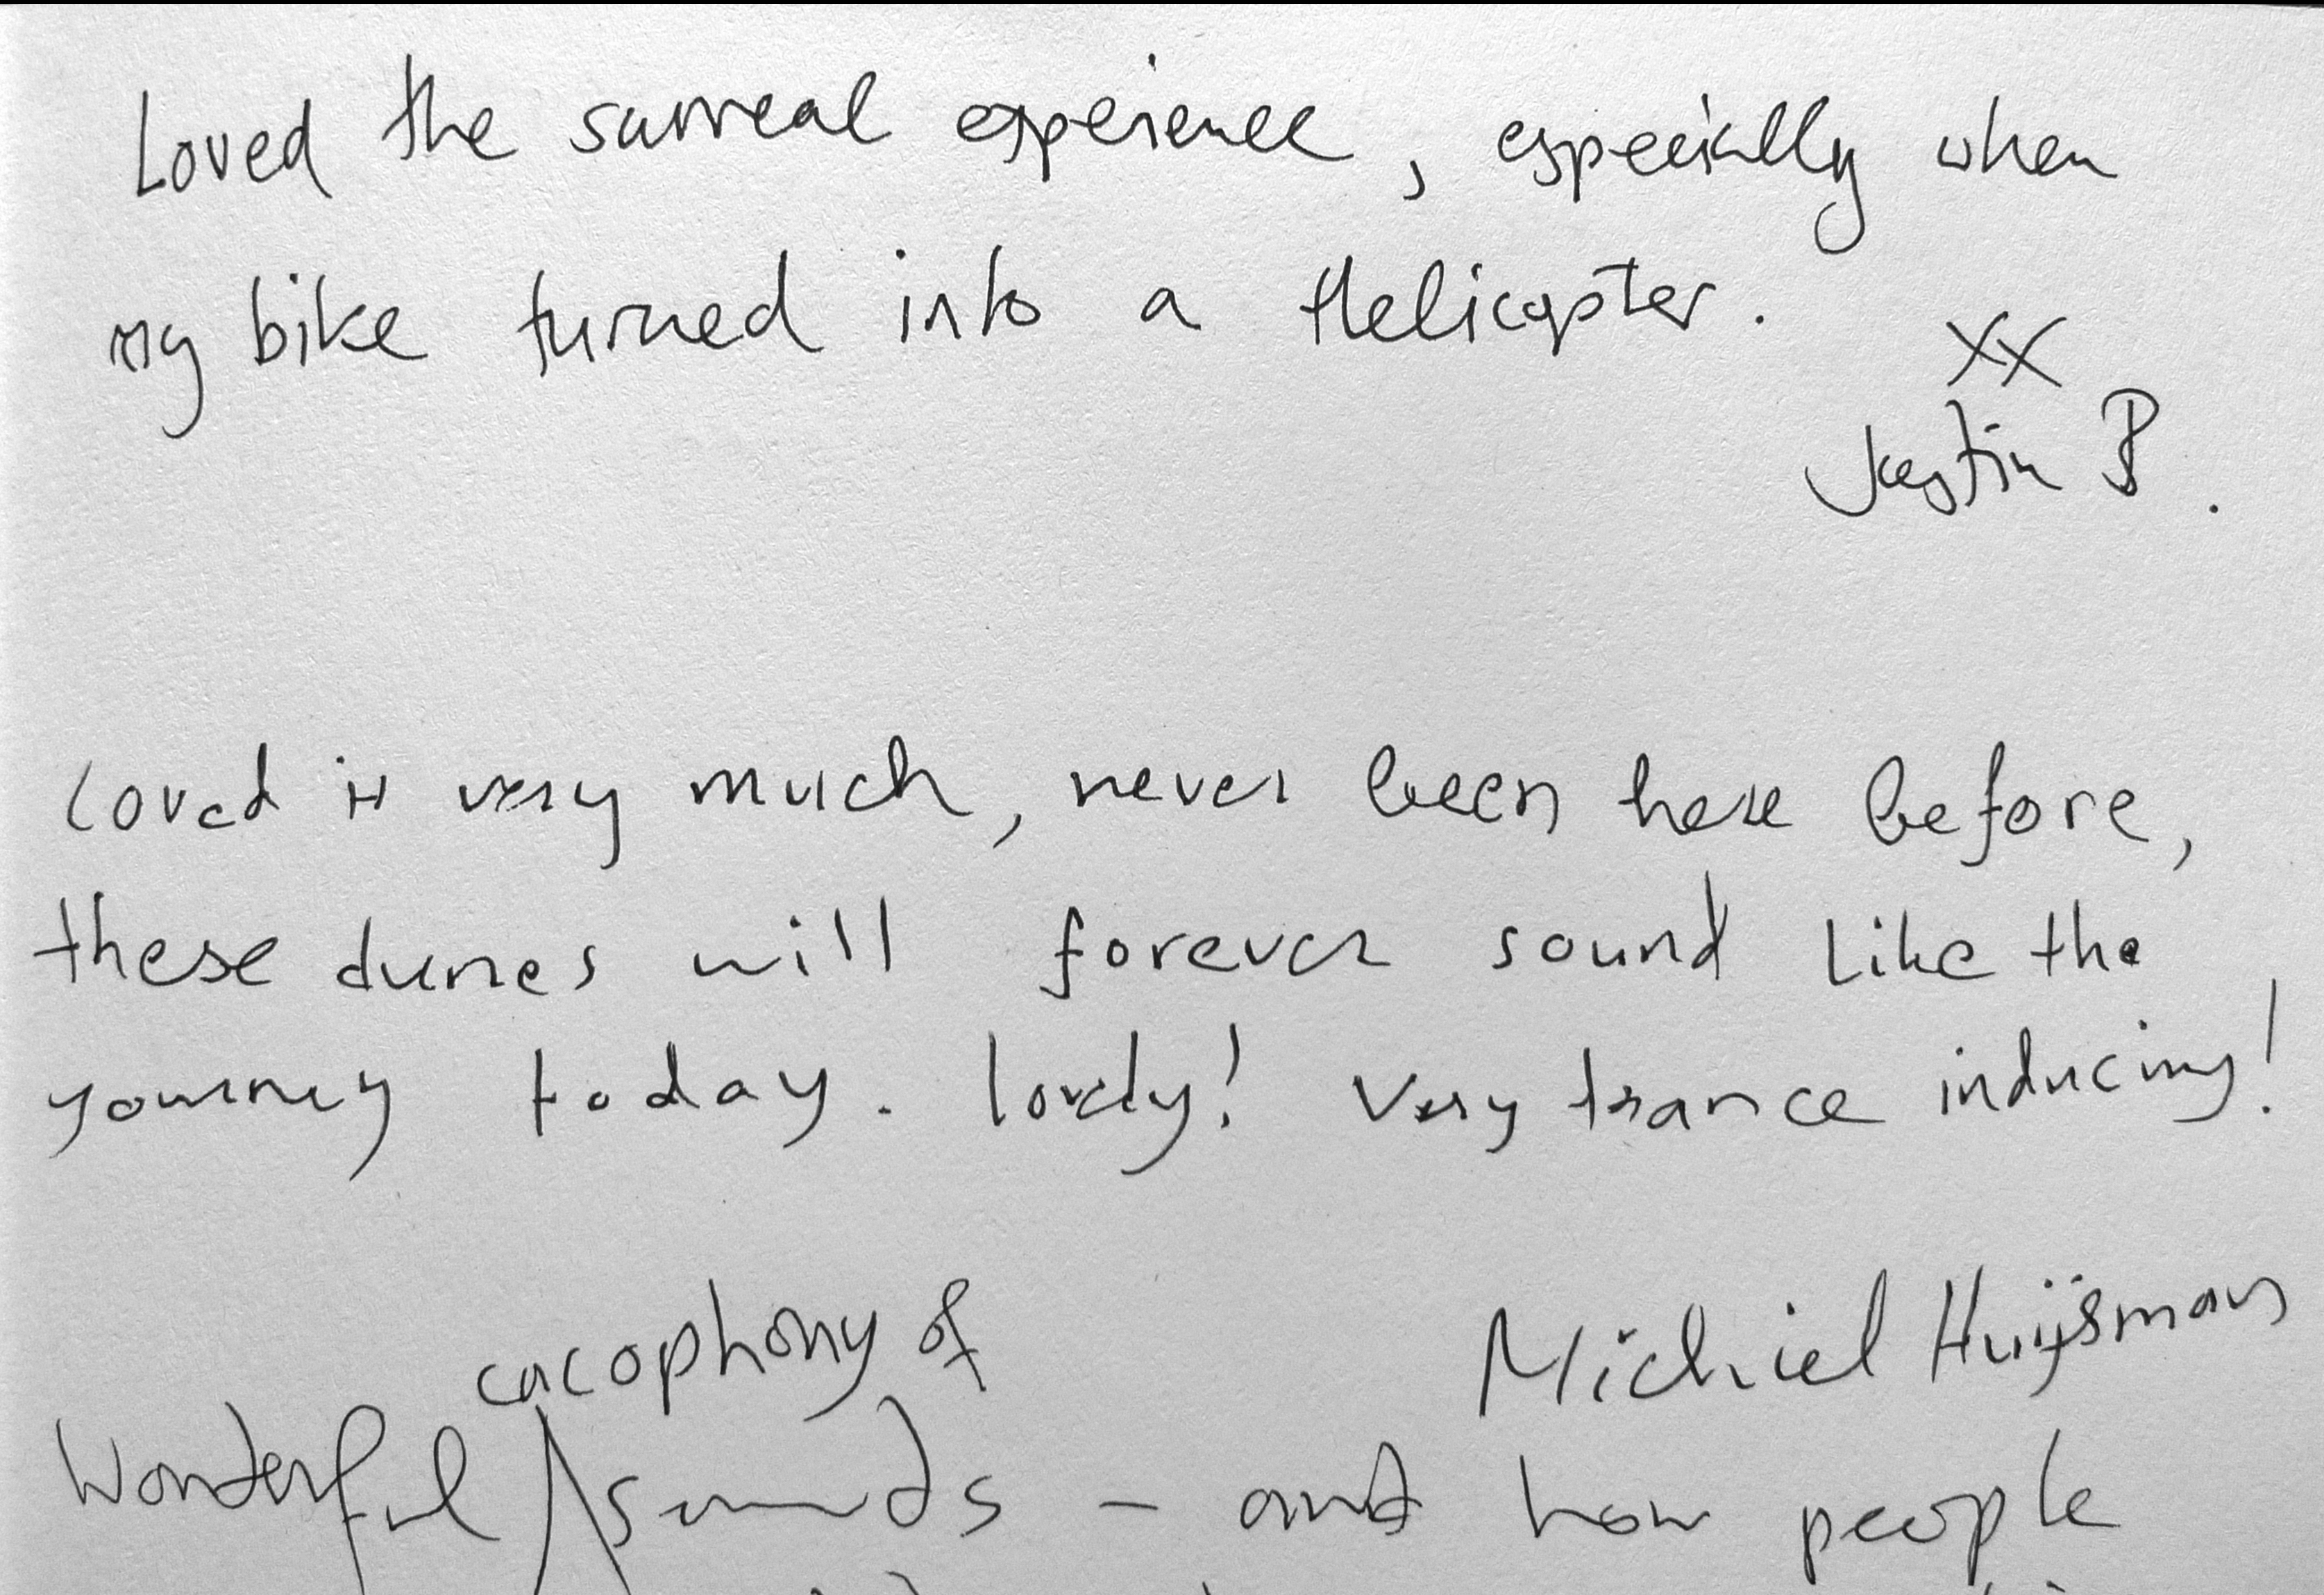 Loved the surreal experience, especially when
my bike turned into a Helicopter.
xx
Justin B.
Loved it very much, never been here before,
these dunes will forever sound like the
yourney today. lovely! Very trance inducing!
Michiel Huijsmans
cacophony of
Wonderful sounds - and how people